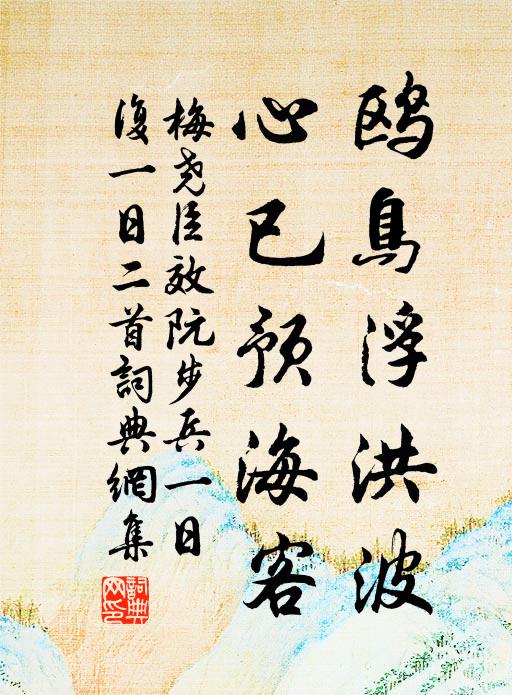 鸥鳥浮洪波
心已預海客
梅尧臣效阮步兵一日
復一日二首詞典網集
詞典網印